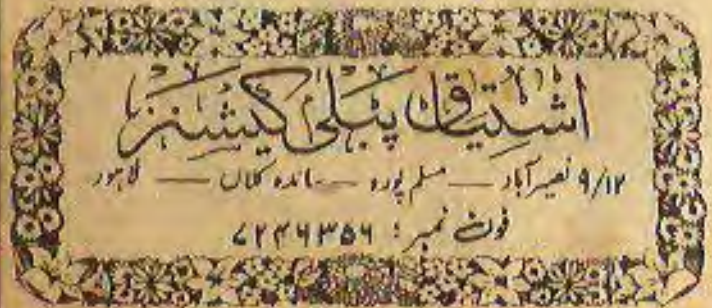 اشتیاق پبلی کیشنز
۹/۱۲ نصیر آباد — مسلم پورہ — ساندہ کلاں — لاہور
فون نمبر : ۷۲۴۶۳۵۶